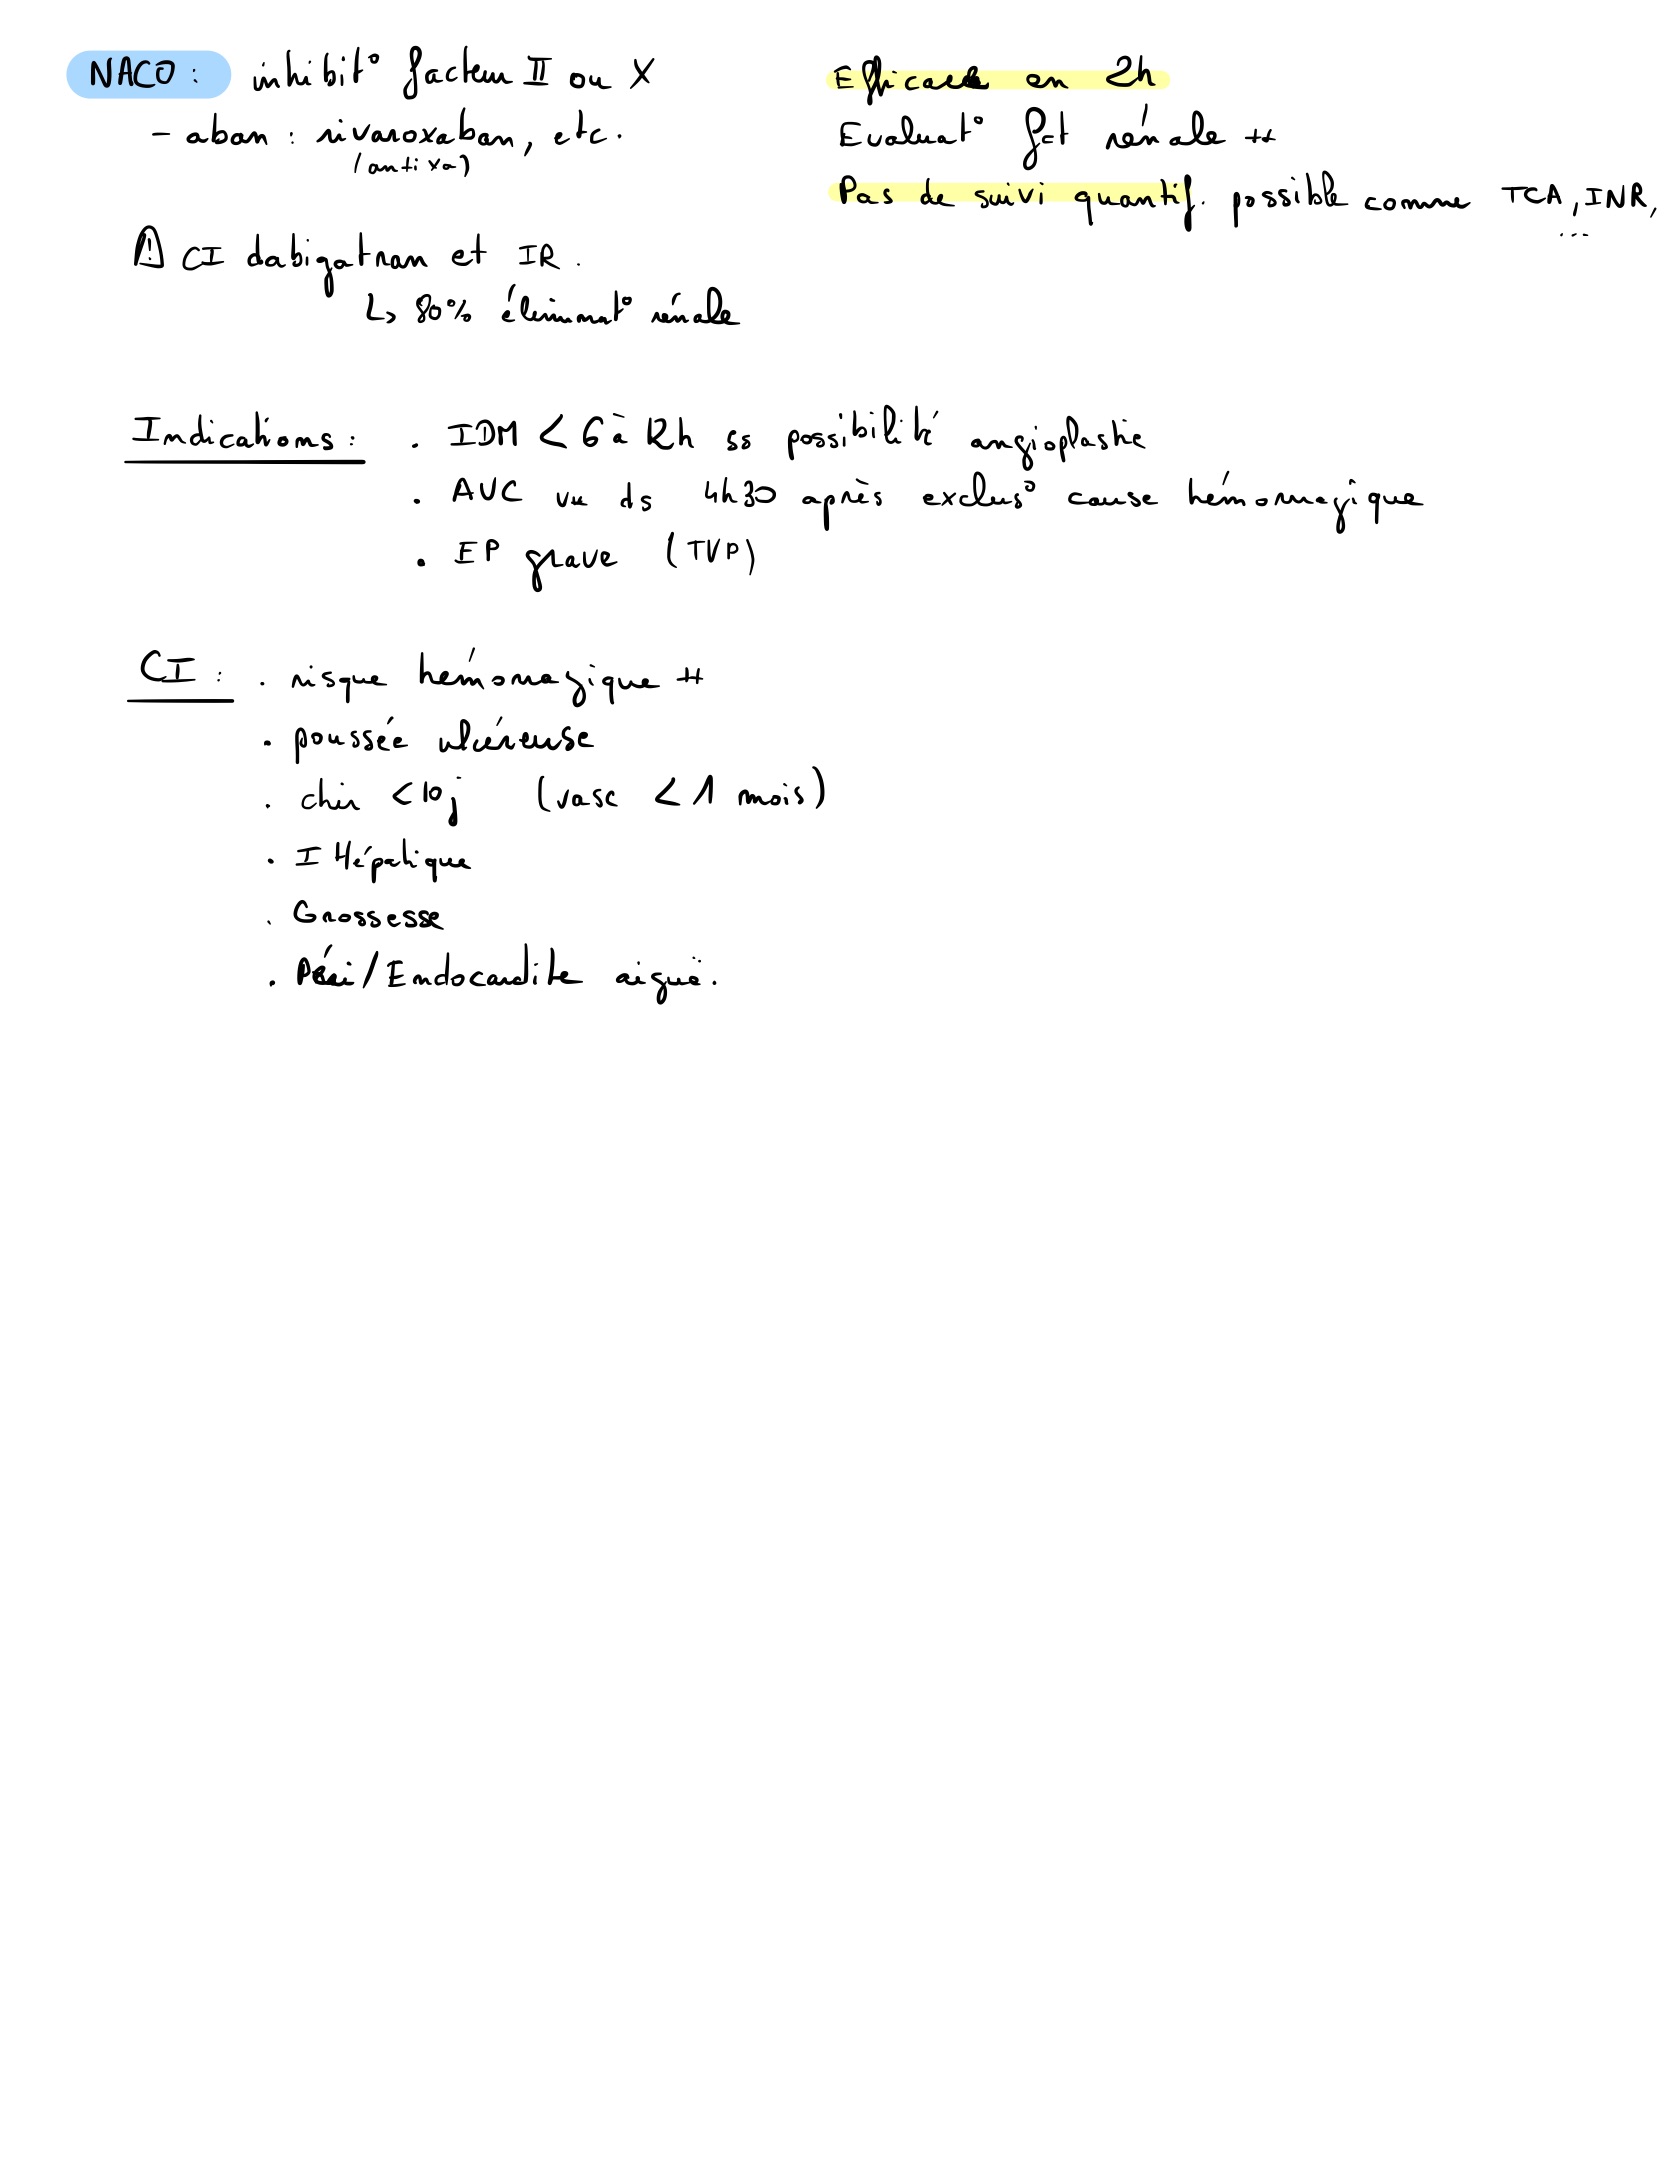 NACO : inhibit° facteur II ou X
- aban : rivaroxaban, etc.
(anti xa)
⚠ CI dabigatran et IR.
↳ 80% éliminat° rénale
Efficace en 2h
Evaluat° fct rénale ++
Pas de suivi quantif. possible comme TCA, INR,
...
Indications : . IDM < 6 à 12h ss possibilité angioplastie
. AVC vu ds 4h30 après exclus° cause hémorragique
. EP grave (TVP)
CI : . risque hémorragique ++
. poussée ulcéreuse
. chir < 10j (vasc < 1 mois)
. I Hépatique
. Grossesse
. Péri/Endocardite aiguë.